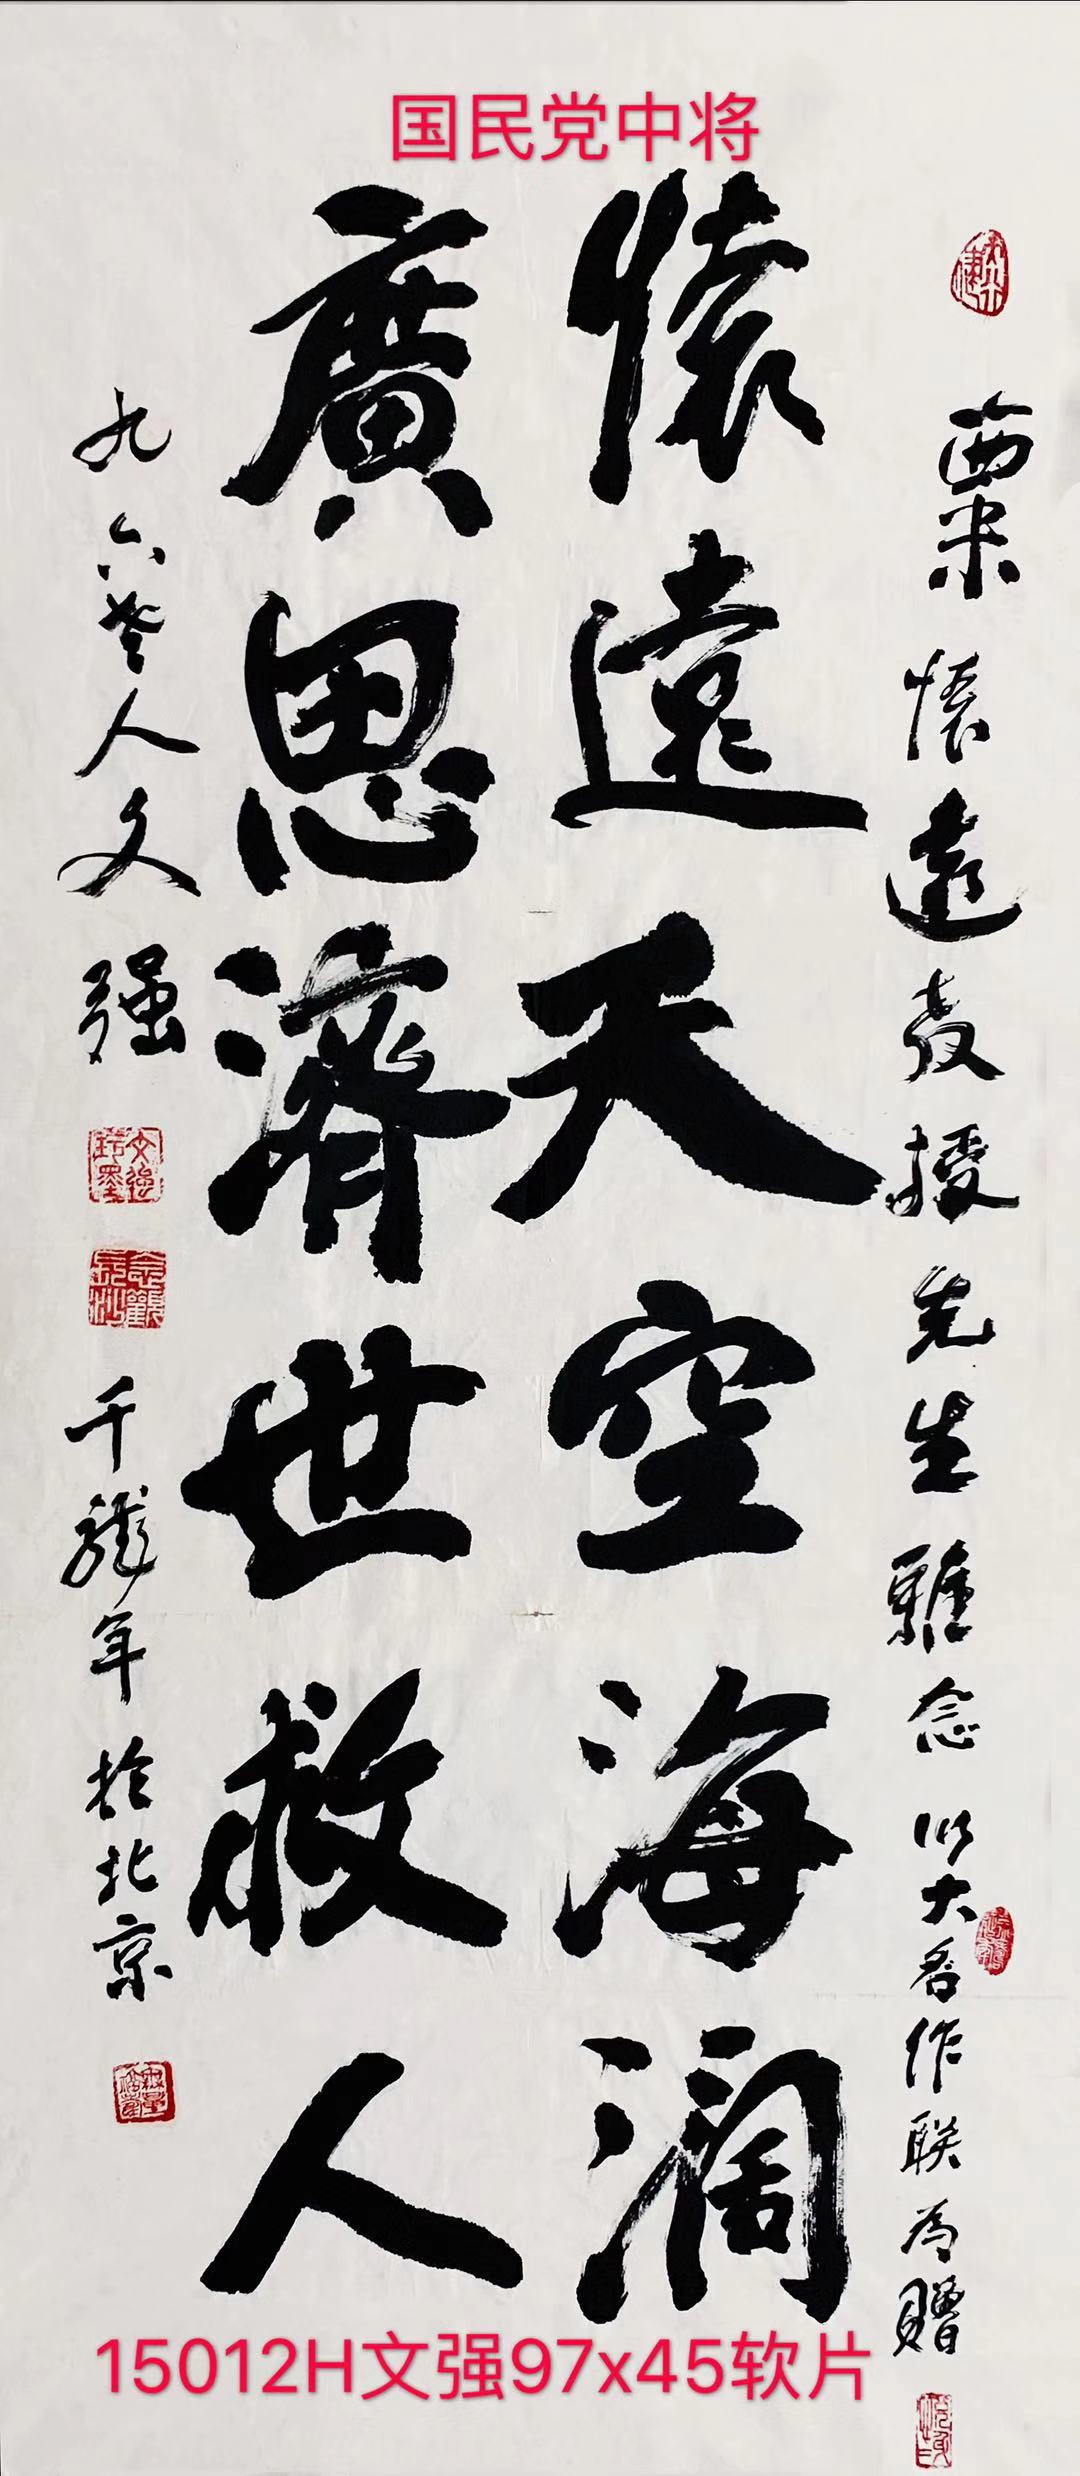 国民党中将
粟懷遠教授先生雅念以大名作联为赠
懷遠天空海阔
廣恩濟世救人
九六老人文强
千龍年於北京
15012H文强97x45软片